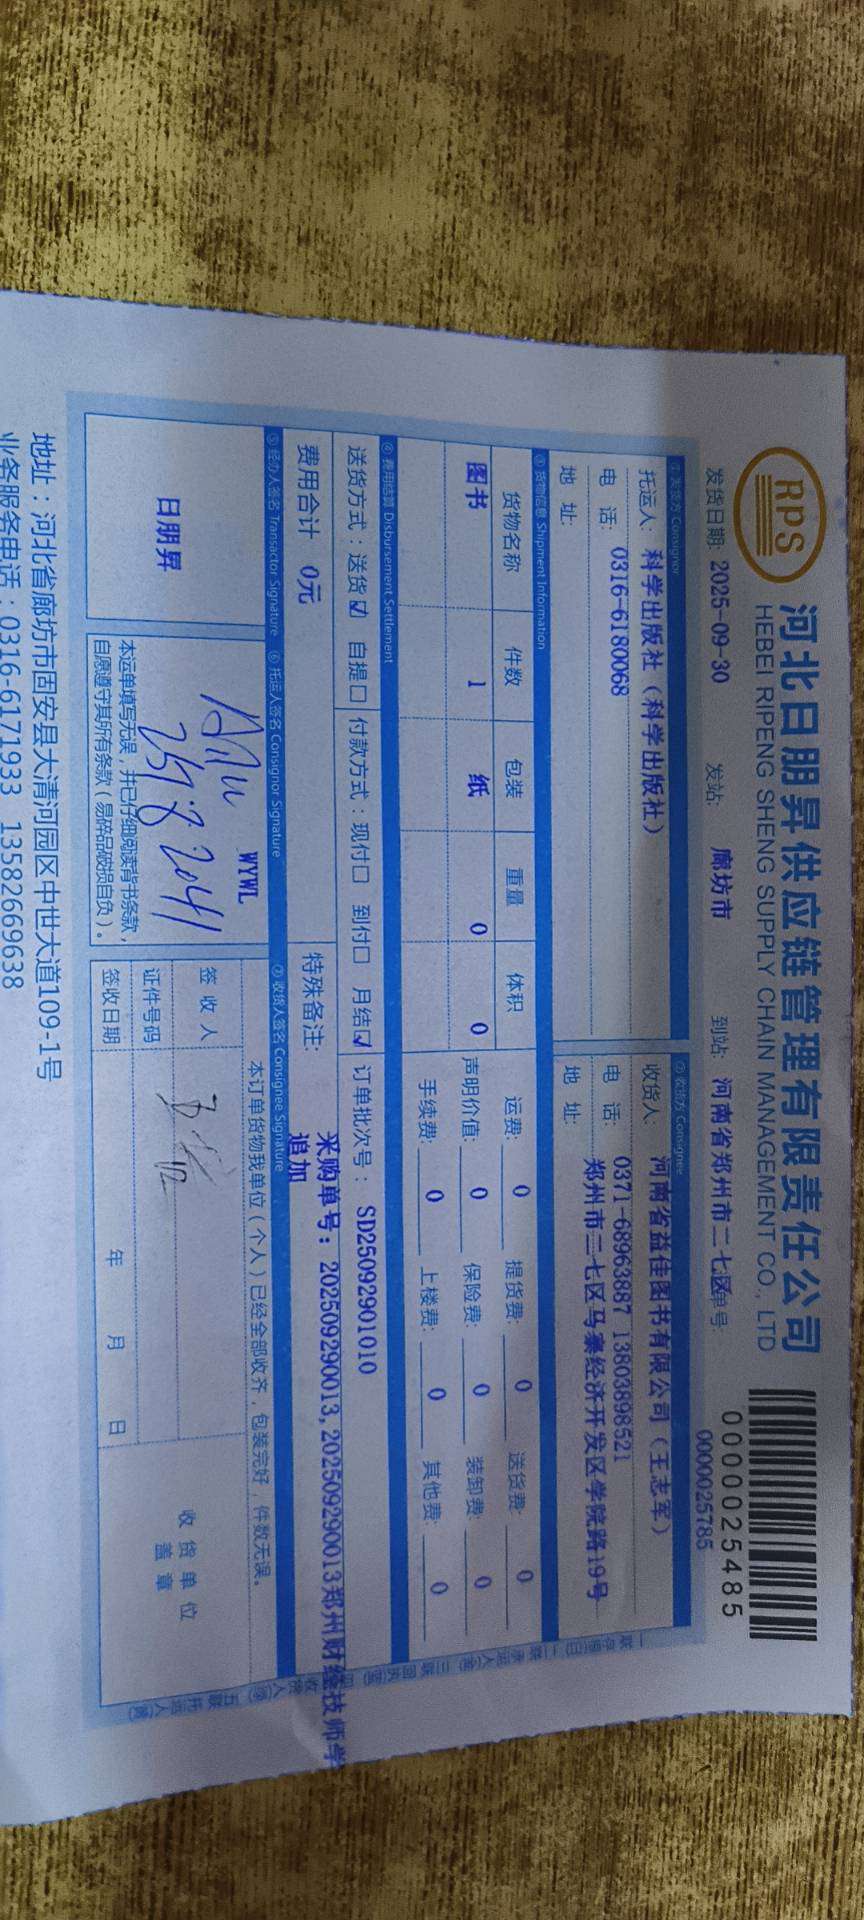 RPS
河北日朋昇供应链管理有限责任公司
HEBEI RIPENG SHENG SUPPLY CHAIN MANAGEMENT CO., LTD
0000025485
发货日期: 2025-09-30 发站: 廊坊市 到站: 河南省郑州市二七区 单号: 0000025785
① 发货方 Consignor
托运人: 科学出版社（科学出版社）
电 话: 0316-6180068
地 址:
② 收货方 Consignee
收货人: 河南省益佳图书有限公司（王志军）
电 话: 0371-68963887 13803898521
地 址: 郑州市二七区马寨经济开发区学院路19号
③ 货物信息 Shipment Information
货物名称 件数 包装 重量 体积
图书 1 纸 0 0
运费: 0 提货费: 0 送货费: 0
声明价值: 0 保险费: 0 装卸费: 0
手续费: 0 上楼费: 0 其他费: 0
④ 费用结算 Disbursement Settlement
送货方式：送货☑ 自提☐ 付款方式：现付☐ 到付☐ 月结☑ 订单批次号： SD25092901010
费用合计 0元
特殊备注: 采购单号: 202509290013, 202509290013郑州财经技师学
追加
⑤ 经办人签名 Transactor Signature ⑥ 托运人签名 Consignor Signature ⑦ 收货人签名 Consignee Signature
日朋昇
WYWL
本运单填写无误，并已仔细阅读背书条款，
自愿遵守其所有条款（易碎品破损自负）。
本订单货物我单位（个人）已经全部收齐，包装完好，件数无误。
签 收 人
证件号码
签收日期 年 月 日
收 货 单 位
盖 章
地址：河北省廊坊市固安县大清河园区中世大道109-1号
业务服务电话：0316-6171933 13582669638